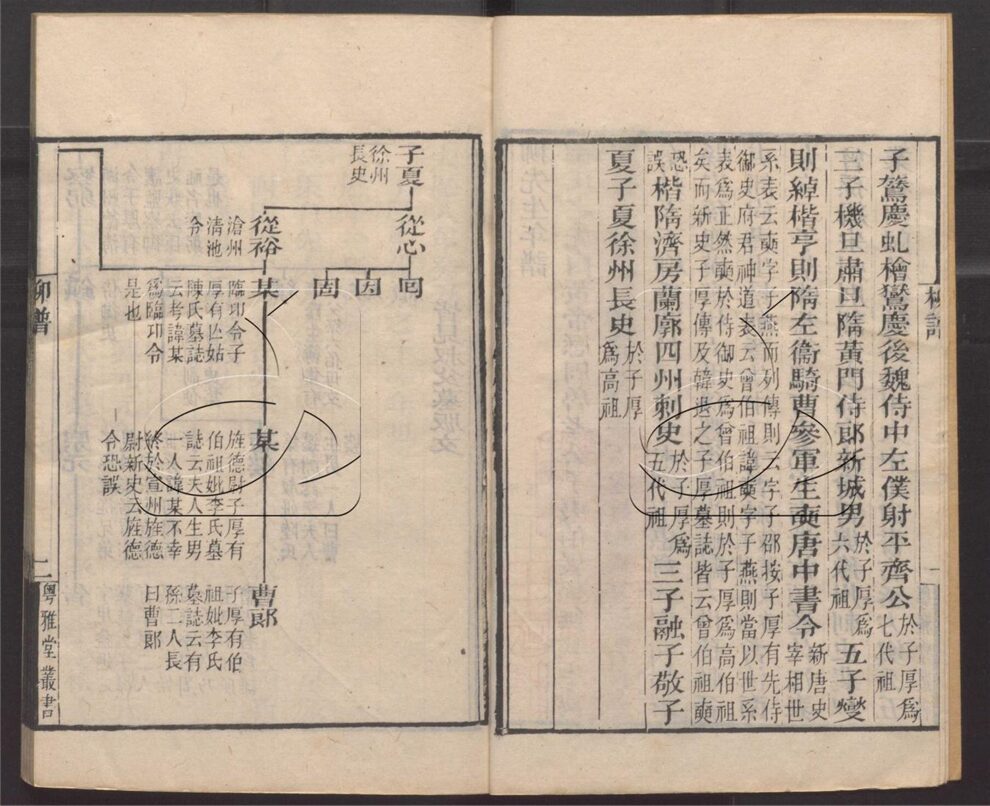 子鷟慶虬檜鸑慶後魏侍中左僕射平齊公於子厚爲七代祖五子夔
三子機旦肅旦隋黃門侍郎新城男於子厚爲六代祖
則綽楷亨則隋左衞騎曹參軍生奭唐中書令新唐史宰相世
系表云奭字子燕而列傳則云字子邵按子厚有先侍
御史府君神道表云曾伯祖諱奭字子燕則當以世系
表爲正然奭於侍御史爲曾伯祖則於子厚爲高伯祖
矣而新史子厚傳及韓退之子厚墓誌皆云曾伯祖奭
恐誤楷隋濟房蘭廓四州刺史於子厚爲五代祖三子融子敬子
夏子夏徐州長史於子厚爲高祖
柳譜
一
子夏
徐州
長史
從心
從裕
滄州
清池
令
囘
因
固
某
臨邛令子
厚有亡姑
陳氏墓誌
云考諱某
爲臨邛令
是也
某
旌德尉子厚有
伯祖妣李氏墓
誌云夫人生男
一人諱某不幸
終於宣州旌德
尉新史云旌德
令恐誤
曹郎
子厚有伯
祖妣李氏
墓誌云有
孫二人長
曰曹郎
柳譜
二
粵雅堂叢書